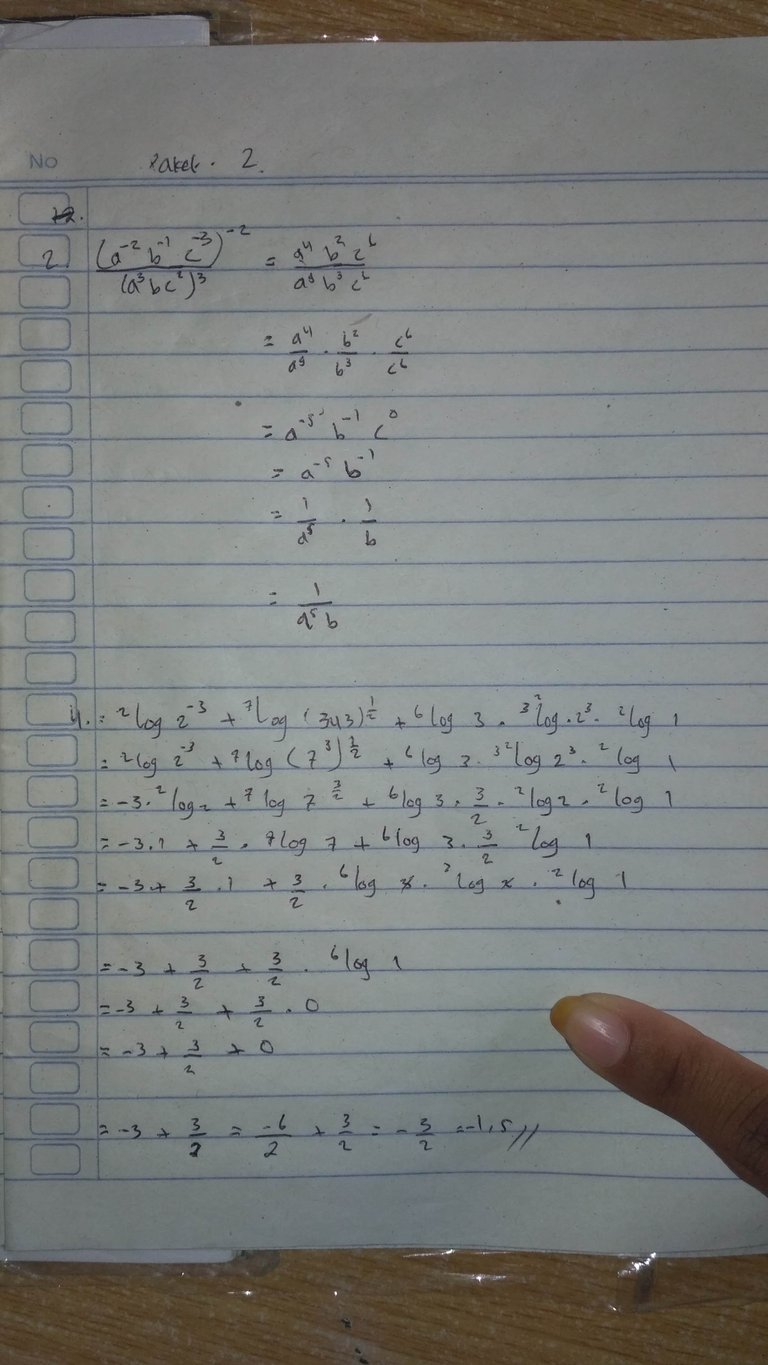 No Paket. 2.
12.
2. (a⁻² b⁻¹ c⁻³)⁻² / (a³ b c²)³ = a⁴ b² c⁶ / a⁹ b³ c⁶
= a⁴/a⁹ . b²/b³ . c⁶/c⁶
= a⁻⁵ b⁻¹ c⁰
= a⁻⁵ b⁻¹
= 1/a⁵ . 1/b
= 1/a⁵ b
4. = ²log 2⁻³ + ⁷log (343)^½ + ⁶log 3 . ³^²log . 2³ . ²log 1
= ²log 2⁻³ + ⁷log (7³)^½ + ⁶log 3 . ³^²log 2³ . ² log 1
= -3 . ²log 2 + ⁷log 7^(3/2) + ⁶log 3 . 3/2 . ²log 2 . ²log 1
= -3 . 1 + 3/2 . ⁷log 7 + ⁶log 3 . 3/2 ²log 1
= -3 + 3/2 . 1 + 3/2 . ⁶log 3 . ³log 2 . ²log 1
= -3 + 3/2 + 3/2 . ⁶log 1
= -3 + 3/2 + 3/2 . 0
= -3 + 3/2 + 0
= -3 + 3/2 = -6/2 + 3/2 = -3/2 = -1,5 //